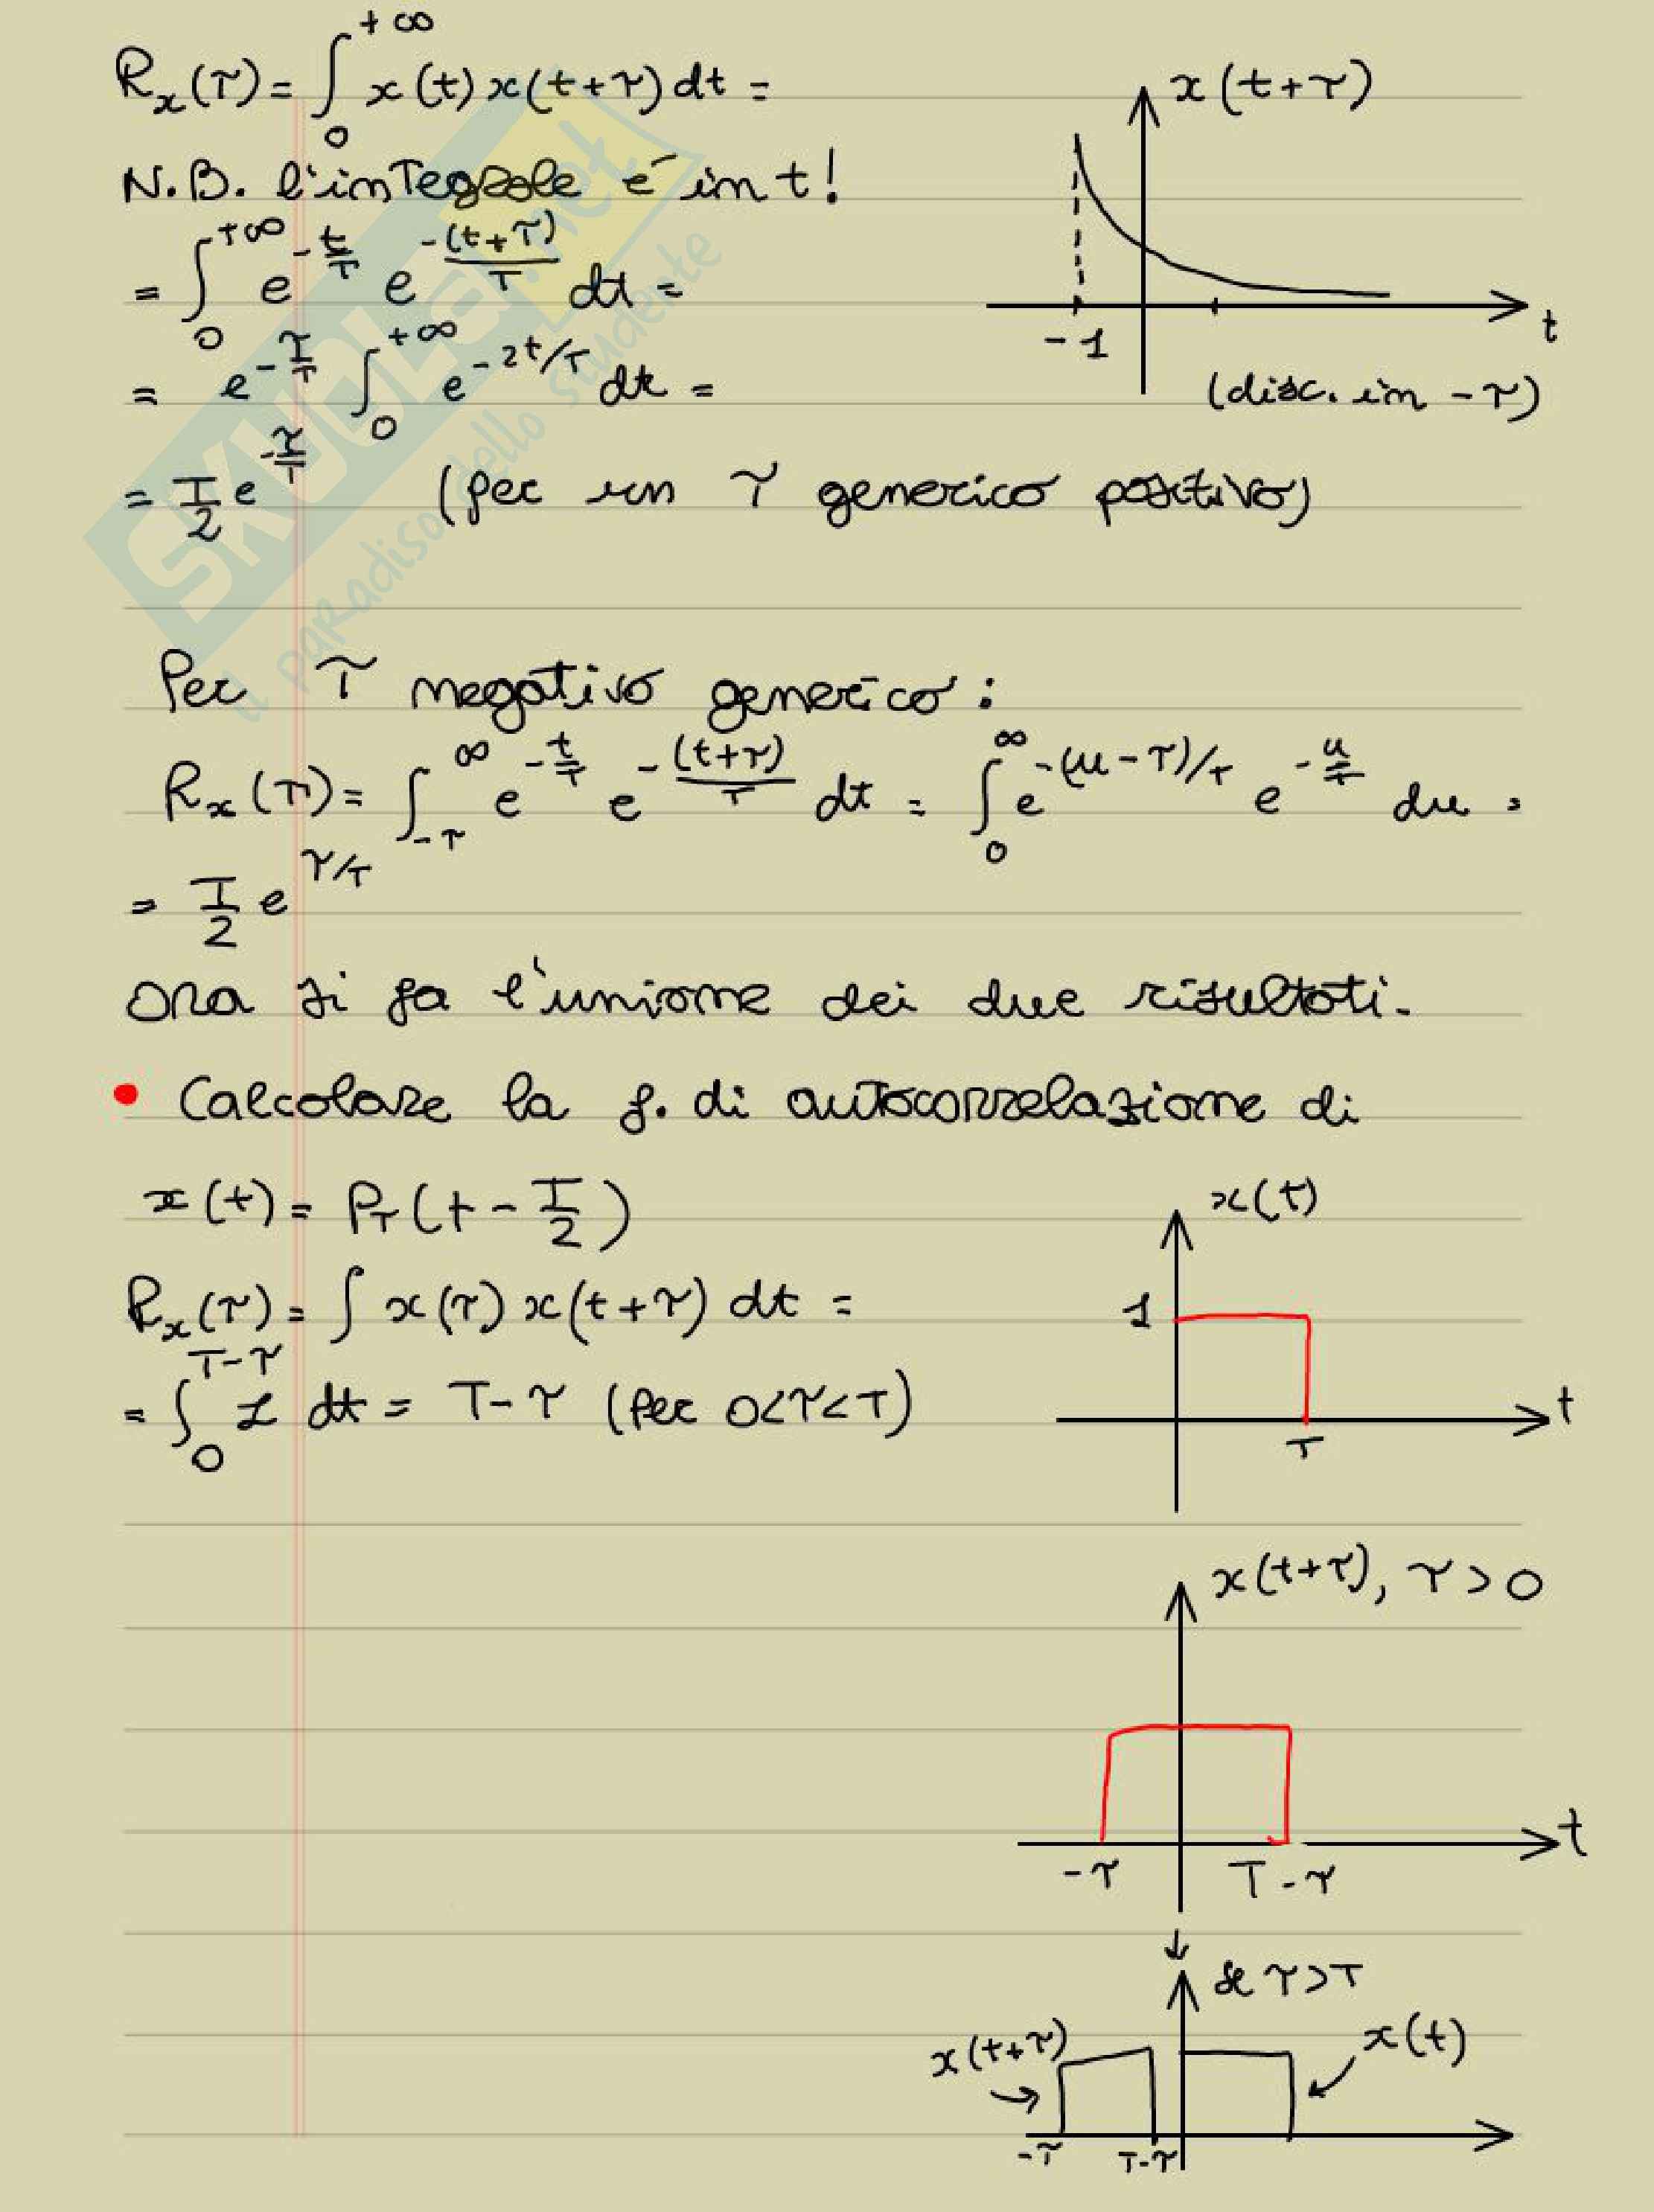 R_x(τ) = ∫_0^{+∞} x(t) x(t+τ) dt =
x(t+τ)
N.B. l'integrale é in t!
= ∫_0^{+∞} e^{-t/T} e^{-(t+τ)/T} dt =
-1
t
= e^{-τ/T} ∫_0^{+∞} e^{-2t/T} dt =
(disc. in -τ)
= T/2 e^{-τ/T} (per un τ generico positivo)
SKUOLA.net
il paradiso dello studente
Per τ negativo generico:
R_x(τ) = ∫_{-τ}^{∞} e^{-t/T} e^{-(t+τ)/T} dt = ∫_0^{∞} e^{-(u-τ)/T} e^{-u/T} du =
= T/2 e^{τ/T}
Ora si fa l'unione dei due risultati.
• Calcolare la f. di autocorrelazione di
x(t) = P_T(t - T/2)
x(t)
R_x(τ) = ∫ x(τ) x(t+τ) dt =
1
= ∫_0^{T-τ} 1 dt = T-τ (per 0<τ<T)
t
T
x(t+τ), τ>0
t
-τ
T-τ
↓
se τ>T
x(t+τ)
x(t)
-τ
T-τ